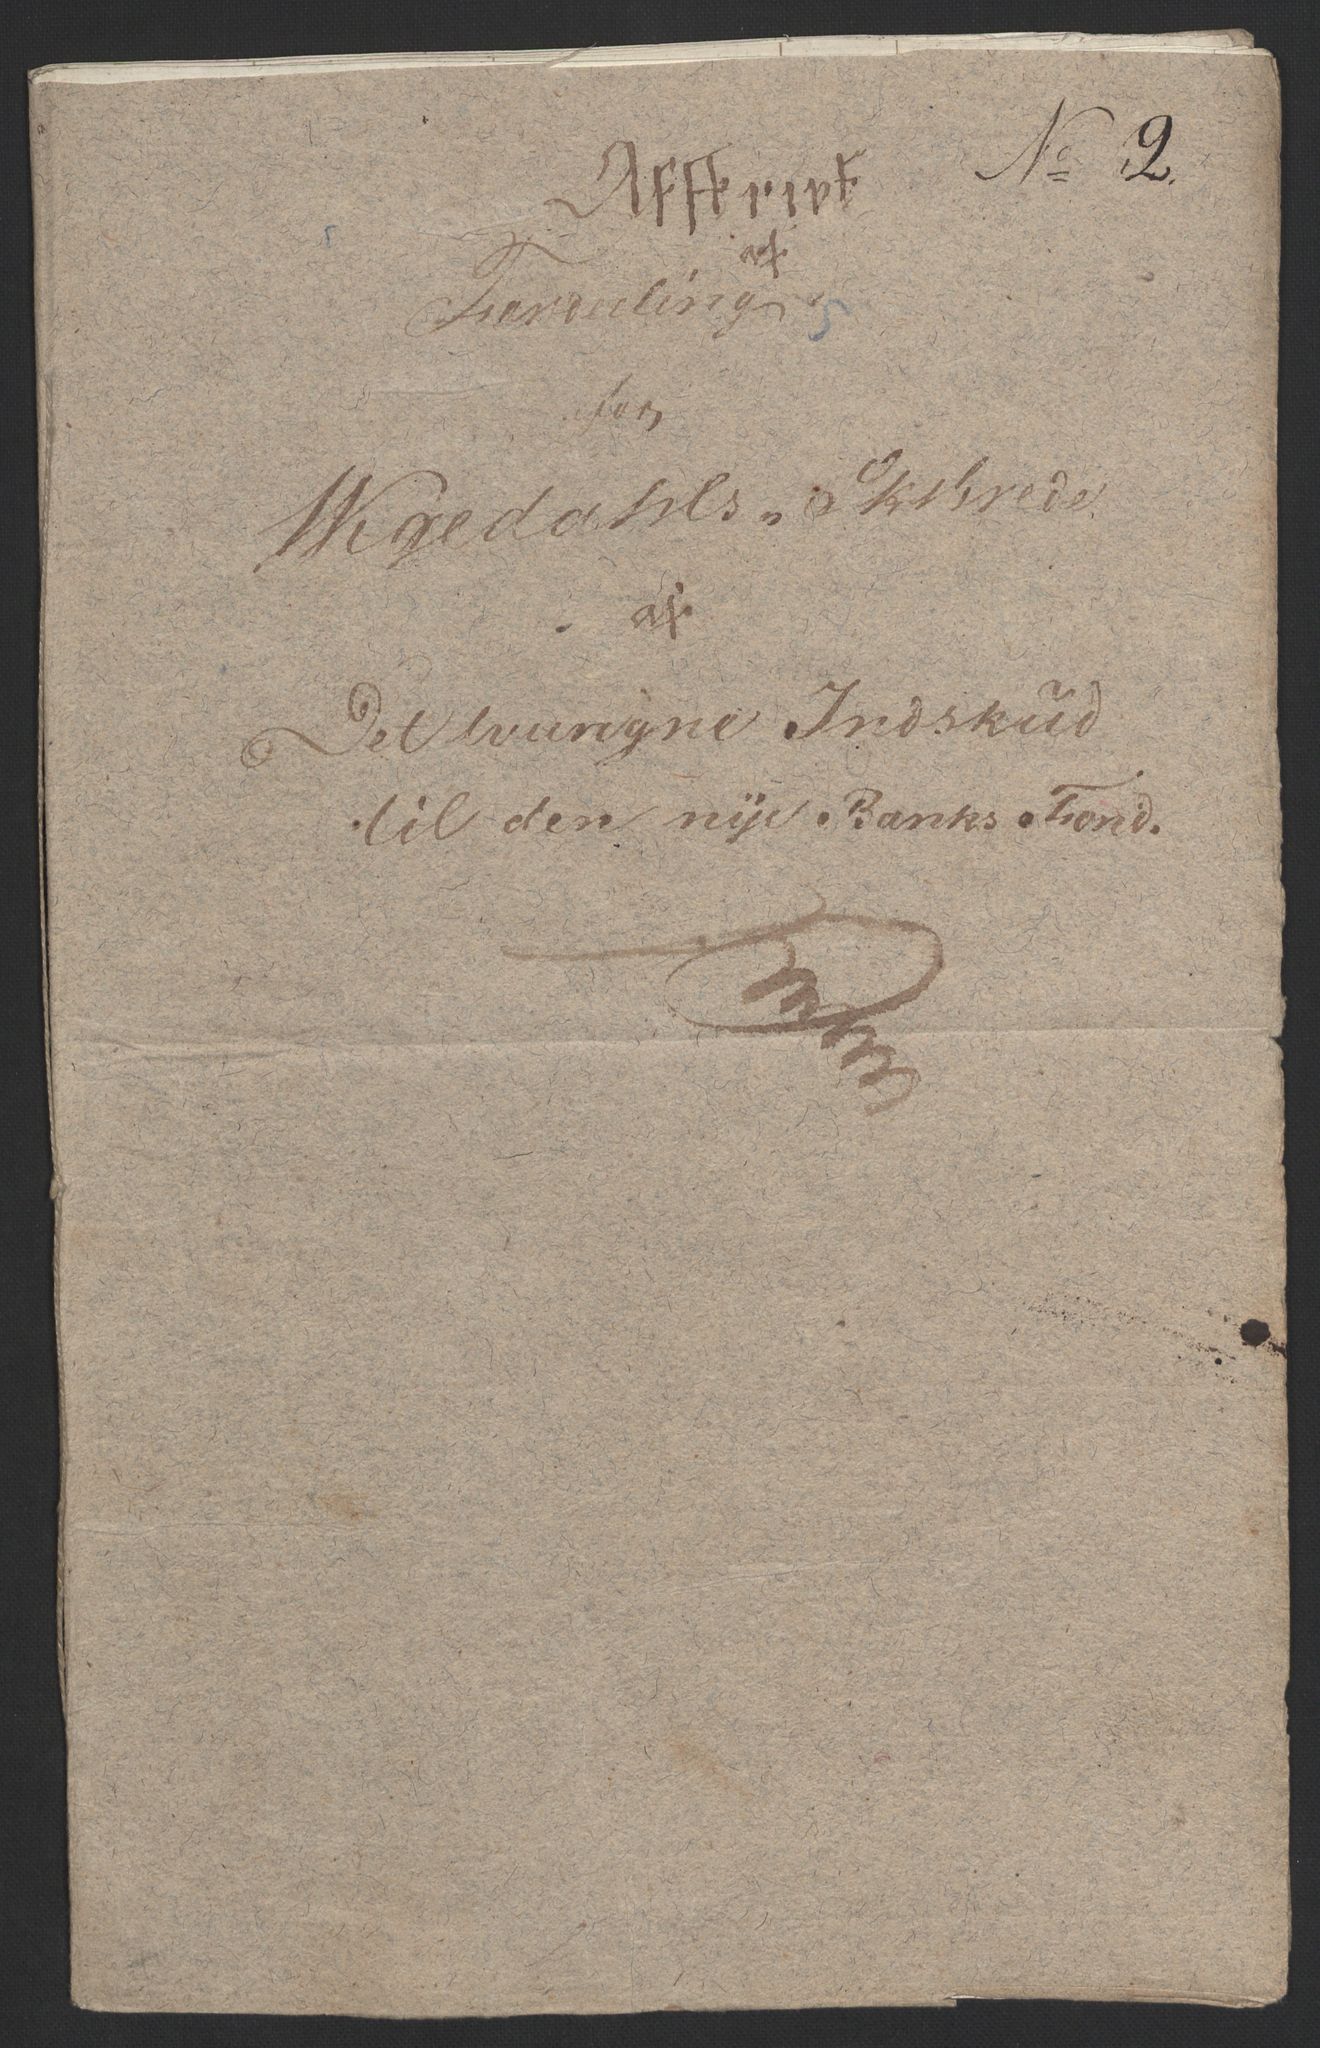 No 2.
Afskrivt
af
Fordeling
for
Qvedahls Skibrede
af
Det tvungne Indskud
til den nye Banks Fond.